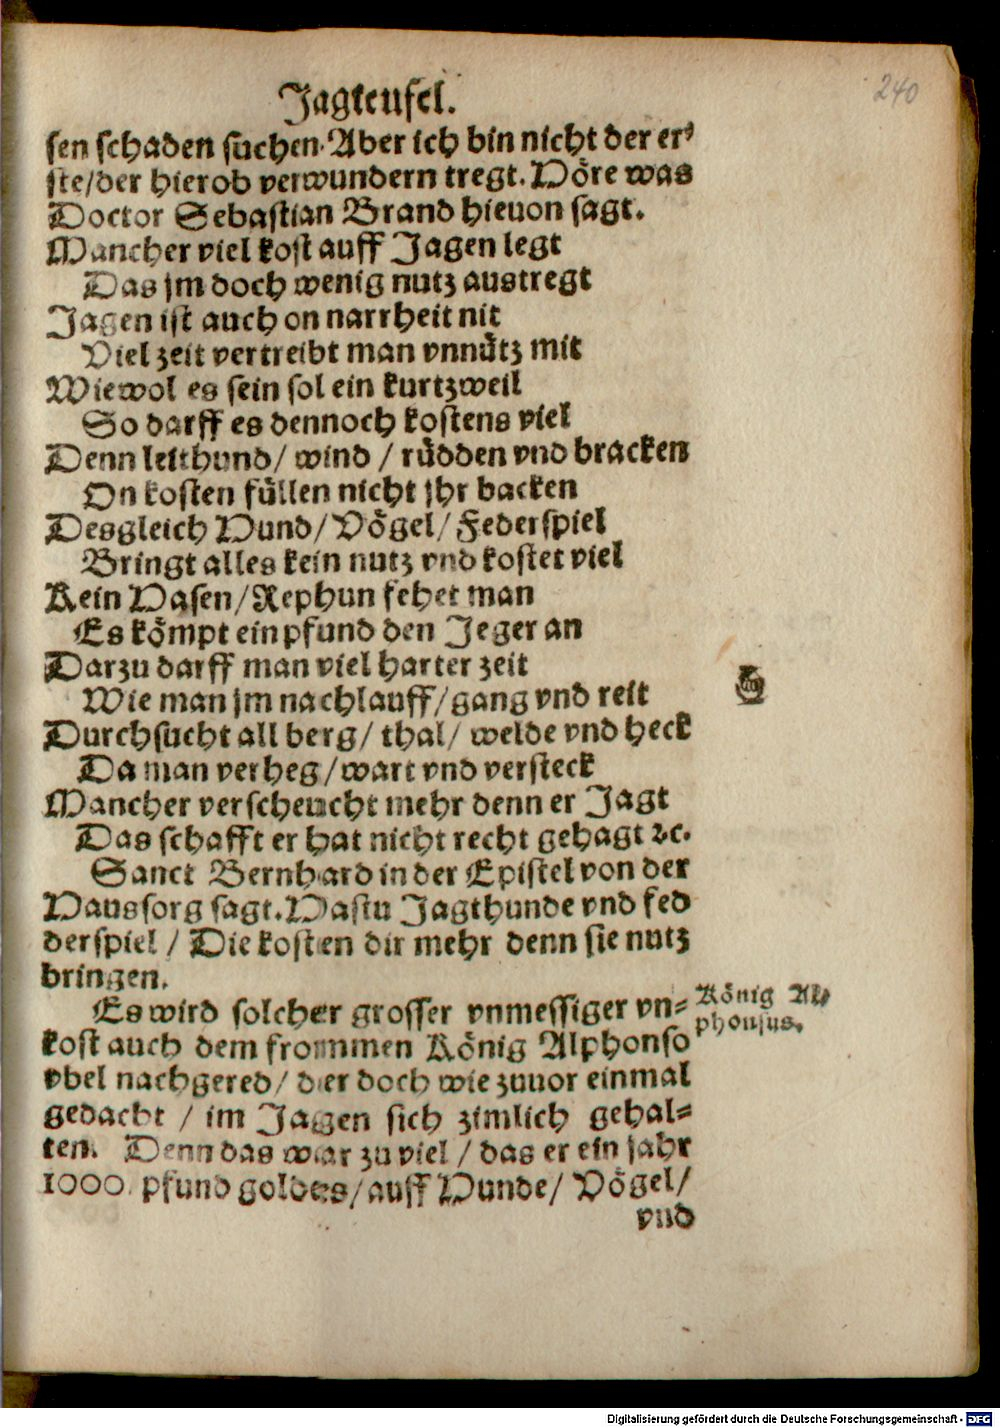 240
Jagteufel.
sen schaden suchen. Aber ich bin nicht der er⸗
ste/der hierob verwundern tregt. Höre was
Doctor Sebastian Brand hieuon sagt.
Mancher viel kost auff Jagen legt
Das jm doch wenig nutz austregt
Jagen ist auch on narrheit nit
Viel zeit vertreibt man vnnütz mit
Wiewol es sein sol ein kurtzweil
So darff es dennoch kostens viel
Denn leithund/ wind / rüdden vnd bracken
On kosten füllen nicht jhr backen
Desgleich Hund/ Vögel/ Federspiel
Bringt alles kein nutz vnd kostet viel
Kein Hasen/Rephun fehet man
Es kömpt ein pfund den Jeger an
Darzu darff man viel harter zeit
Wie man jm nachlauff/gang vnd reit
Durchsucht all berg/ thal/ welde vnd heck
Da man verheg/wart vnd versteck
Mancher verscheucht mehr denn er Jagt
Das schafft er hat nicht recht gehagt ꝛc.
Sanct Bernhard in der Epistel von der
Haussorg sagt. Hastu Jagthunde vnd fed
derspiel / Die kosten dir mehr denn sie nutz
bringen.
Es wird solcher grosser vnmessiger vn⸗
kost auch dem frommen König Alphonso
vbel nachgered/ der doch wie zuuor einmal
gedacht / im Jagen sich zimlich gehal⸗
ten. Denn das war zu viel / das er ein jahr
1000. pfund goldes/auff Hunde/ Vögel/
vnd
König Al⸗
phonsus.
Digitalisierung gefördert durch die Deutsche Forschungsgemeinschaft - DFG